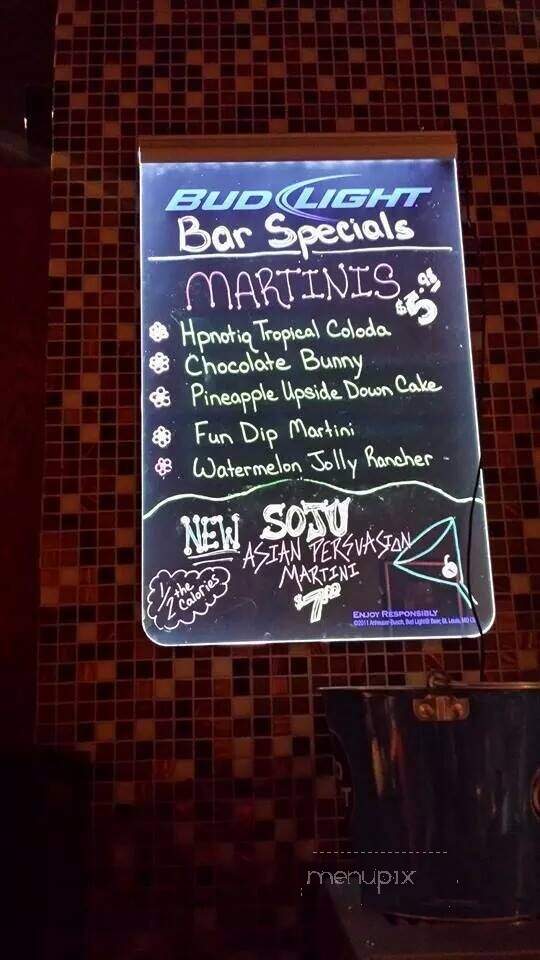 BUD LIGHT
Bar Specials
MARTINIS $5.95
Hpnotiq Tropical Coloda
Chocolate Bunny
Pineapple Upside Down Cake
Fun Dip Martini
Watermelon Jolly Rancher
NEW SOJU
ASIAN PERSVASION
MARTINI
$7.00
1/2 the Calories
ENJOY RESPONSIBLY
©2011 Anheuser-Busch, Bud Light® Beer, St. Louis, MO
menupix